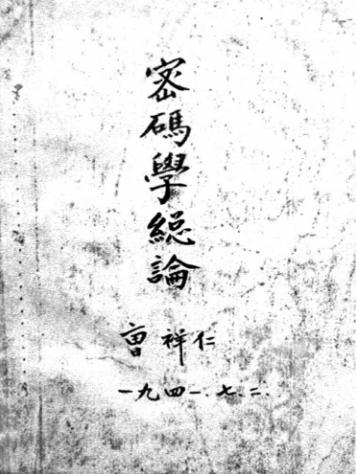 密碼學總論
曹祥仁
一九四一.七.二.